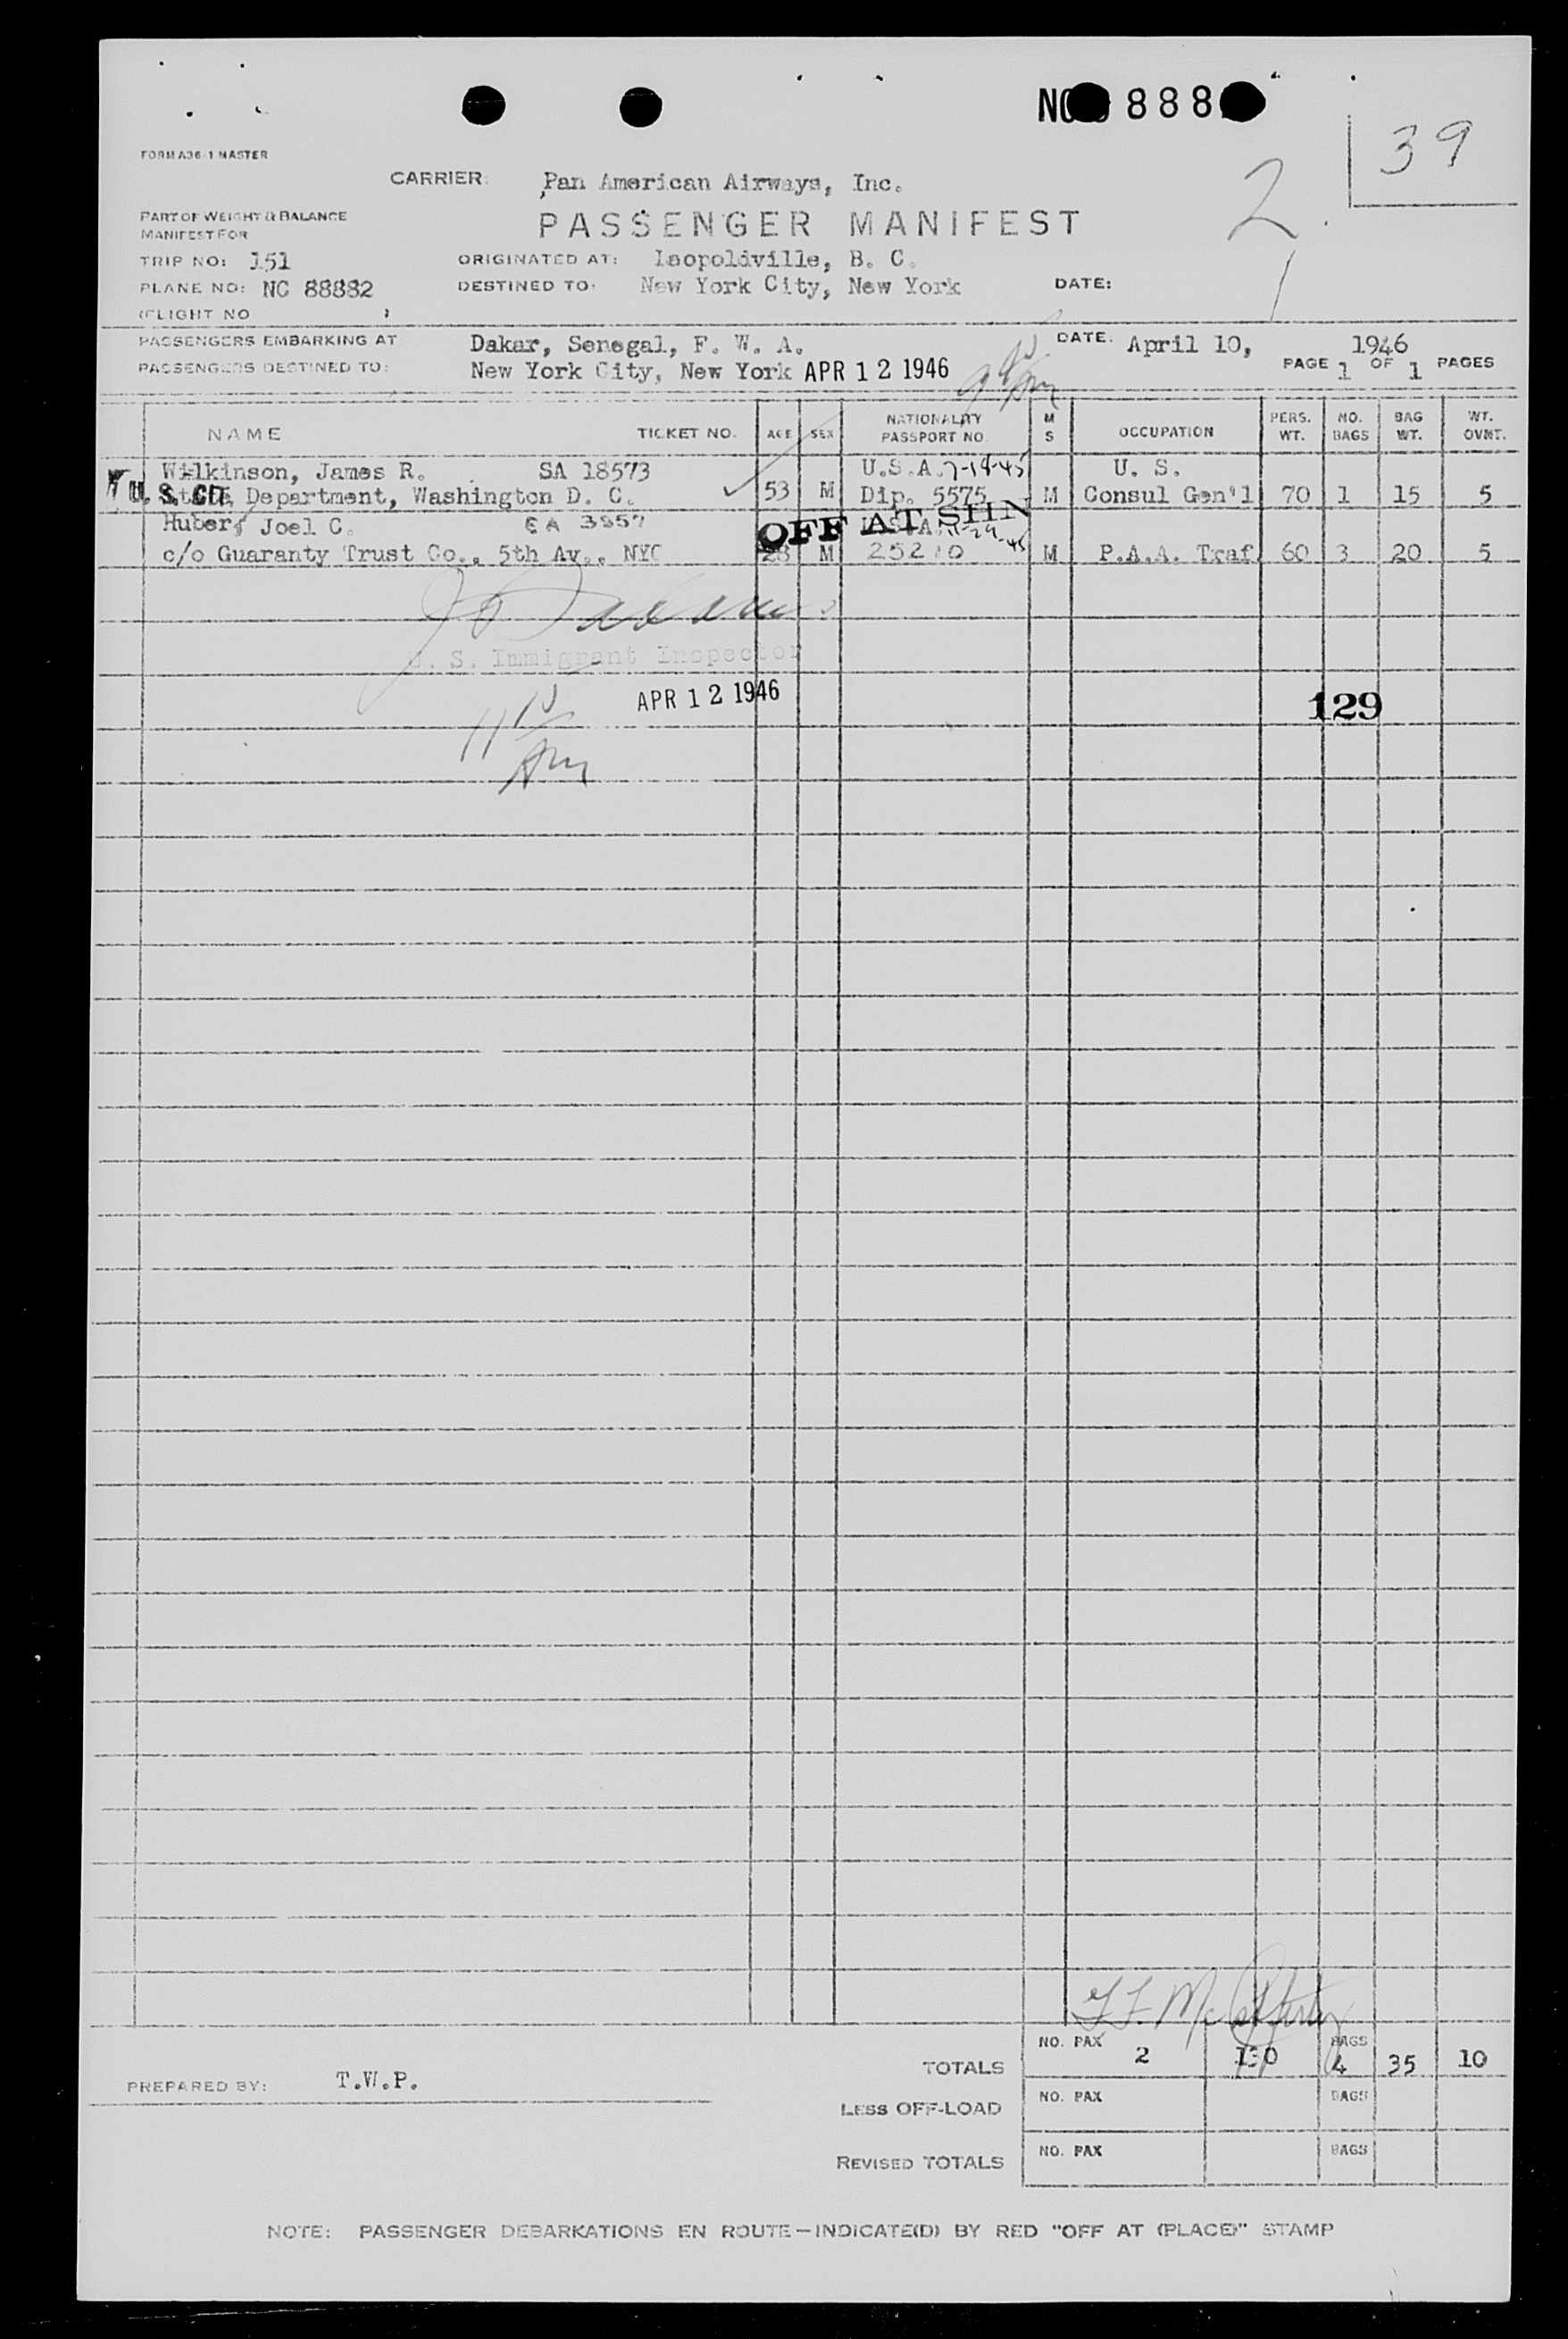 NO 888
39
FORM A36-1 MASTER
2
CARRIER: Pan American Airways, Inc.
PART OF WEIGHT & BALANCE
MANIFEST FOR
PASSENGER MANIFEST
TRIP NO: 151 ORIGINATED AT: Leopoldville, B. C.
PLANE NO: NC 88882 DESTINED TO: New York City, New York DATE:
(FLIGHT NO )
1
PASSENGERS EMBARKING AT Dakar, Senegal, F. W. A. DATE: April 10, 1946
PASSENGERS DESTINED TO: New York City, New York APR 12 1946 PAGE 1 OF 1 PAGES
NAME TICKET NO. AGE SEX NATIONALITY PASSPORT NO. M S OCCUPATION PERS. WT. NO. BAGS BAG WT. WT. OVNT.
Wilkinson, James R. SA 18573 U.S.A. 7-18-45 U. S.
U. S. CIT. State Department, Washington D. C. 53 M Dip. 5575 M Consul Gen'l 70 1 15 5
Huber, Joel C. EA 3857 U.S.A.
OFF AT SHN
c/o Guaranty Trust Co., 5th Av., NYC 28 M 25210 M P.A.A. Traf. 60 3 20 5
U. S. Immigrant Inspector
APR 12 1946
129
TOTALS NO. PAX 2 130 BAGS 4 35 10
PREPARED BY: T.W.P.
LESS OFF-LOAD NO. PAX BAGS
REVISED TOTALS NO. PAX BAGS
NOTE: PASSENGER DEBARKATIONS EN ROUTE—INDICATE(D) BY RED "OFF AT (PLACE)" STAMP